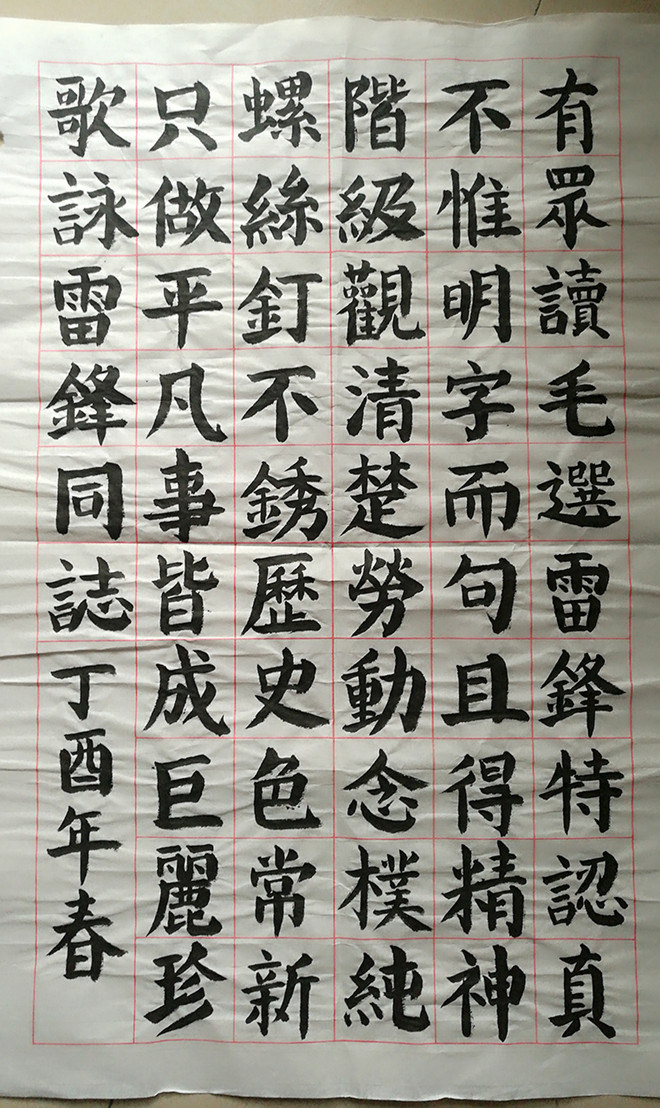 有眾讀毛選雷鋒特認真
不惟明字而句且得精神
階級觀清楚勞動念樸純
螺絲釘不銹歷史色常新
只做平凡事皆成巨麗珍
歌詠雷鋒同誌丁酉年春